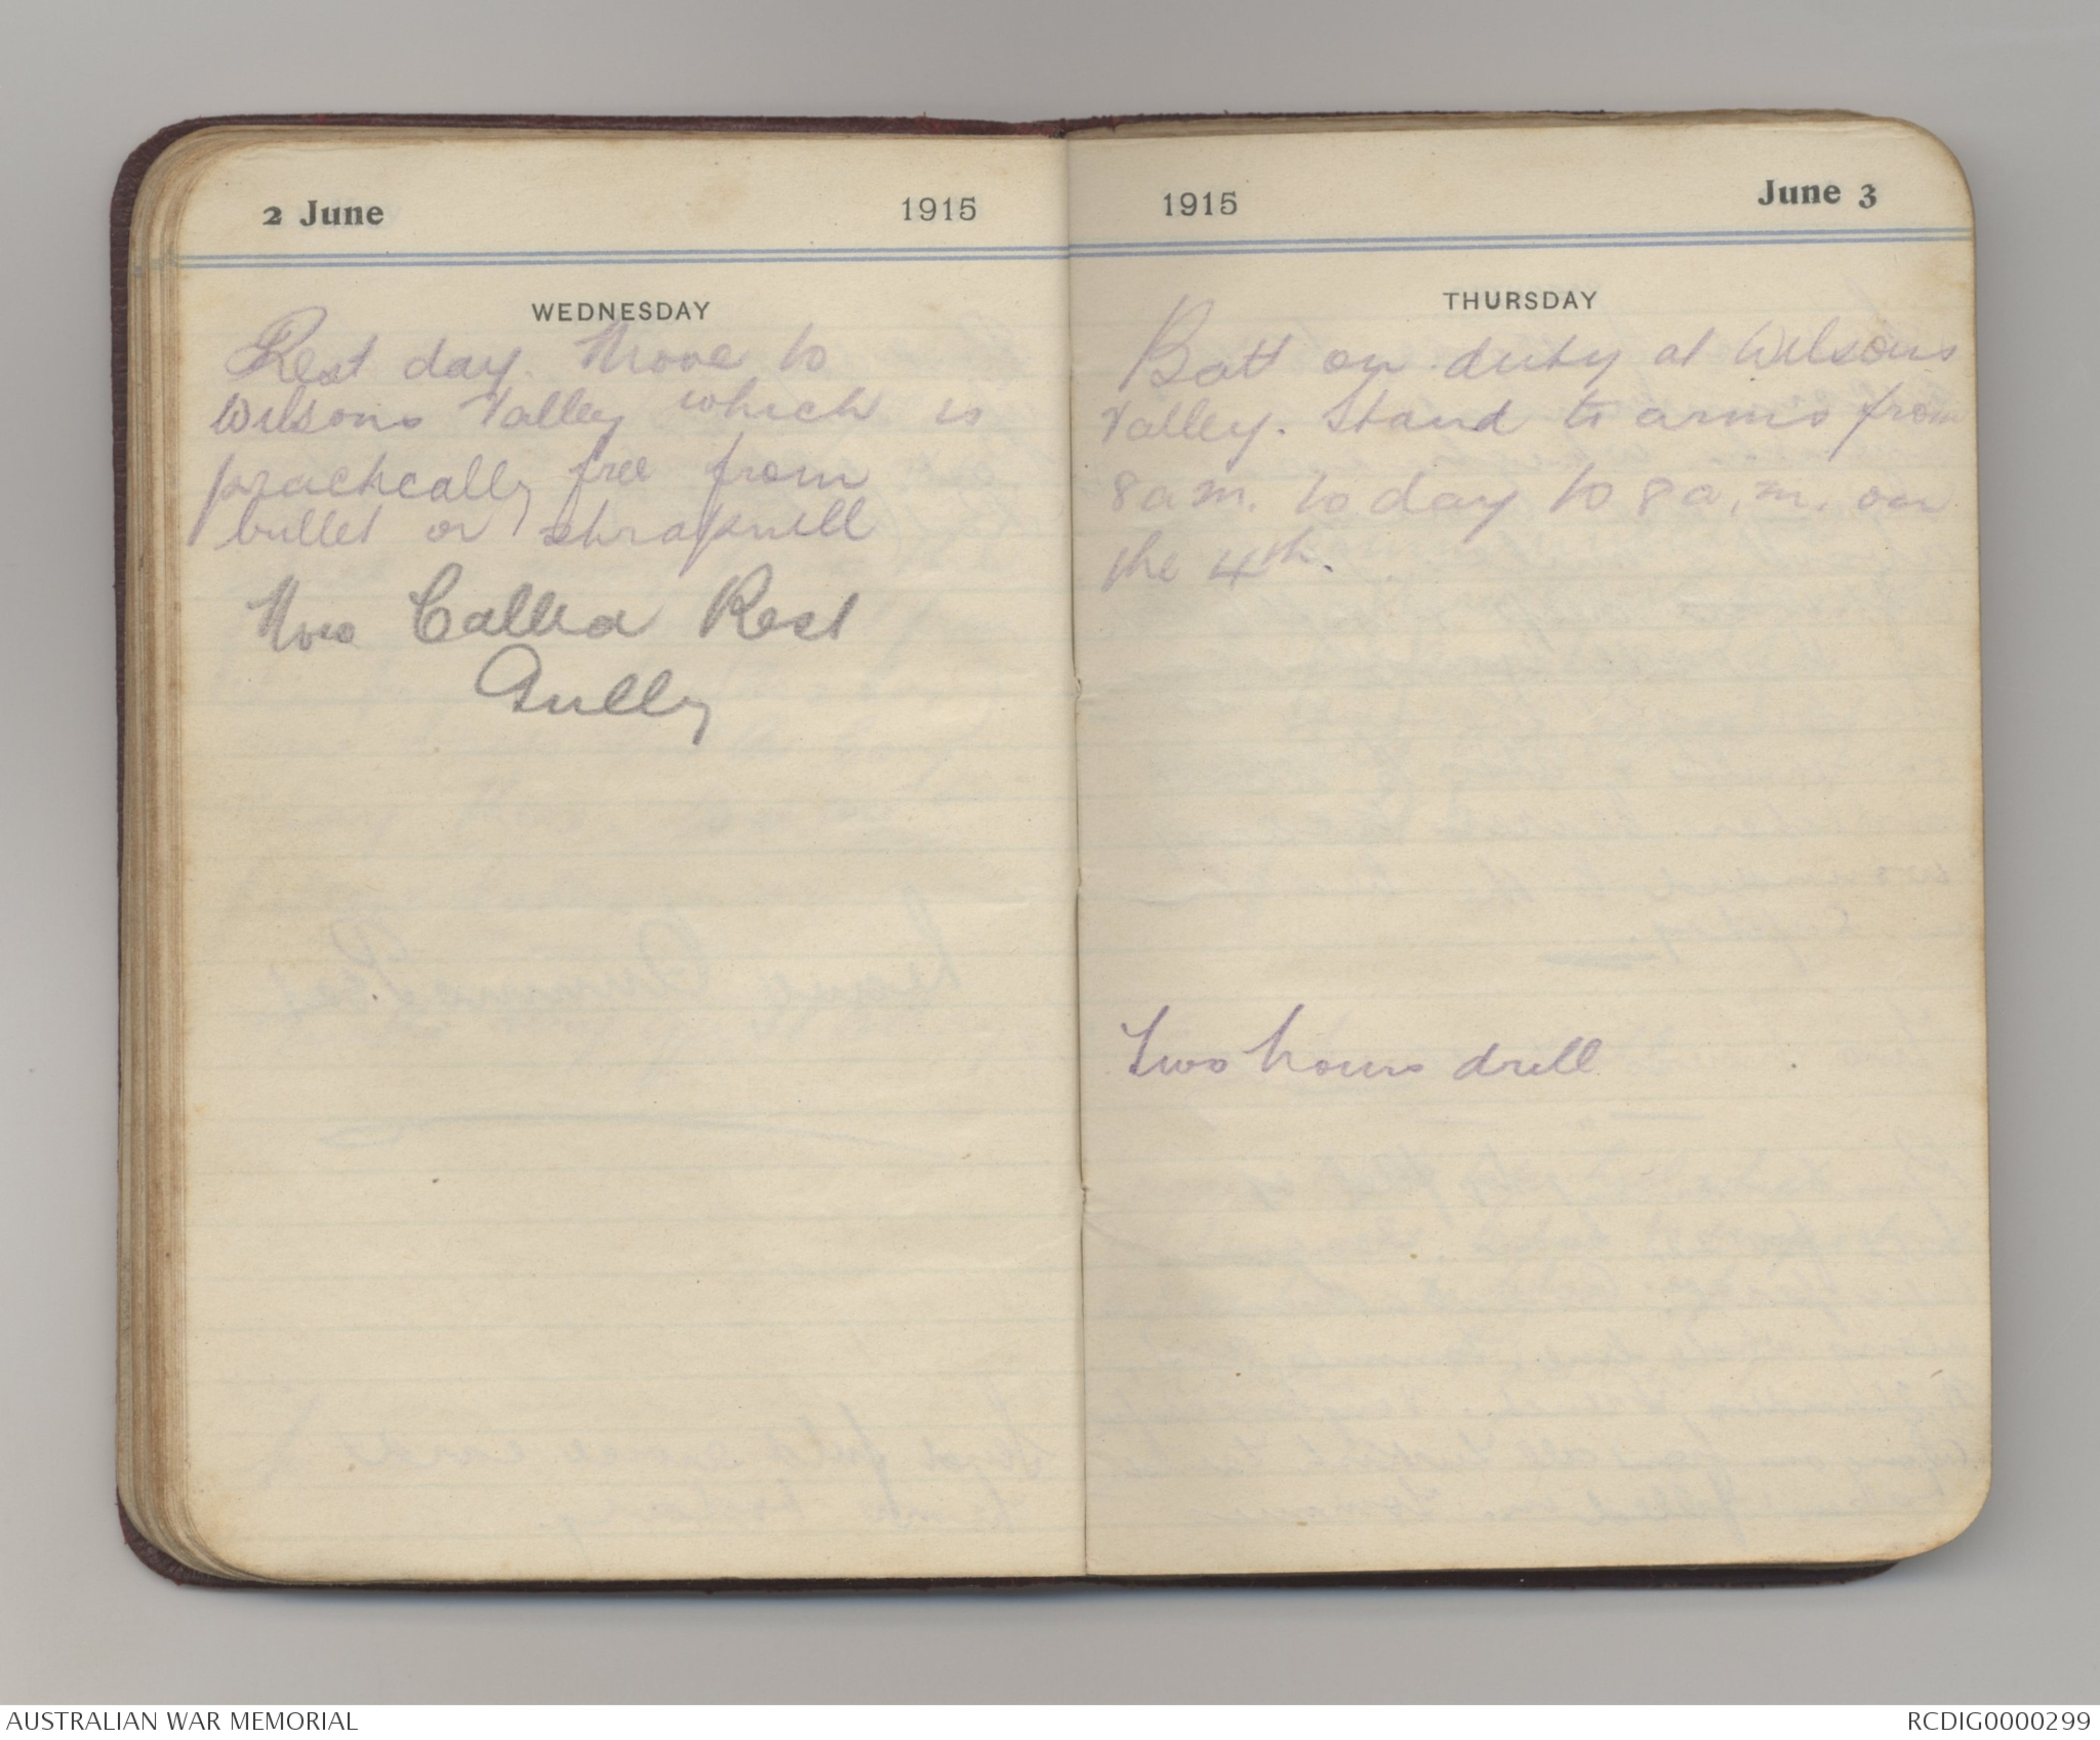 2 June 1915
WEDNESDAY
Rest day. Move to
Wilsons Valley which is
practically free from
bullet or shrapnell
Now Called Rest
Gully
1915 June 3
THURSDAY
Batt on duty at Wilsons
Valley. Stand to arms from
8 a.m. to day to 8 a.m. on
the 4th.
Two hours drill
AUSTRALIAN WAR MEMORIAL
RCDIG0000299